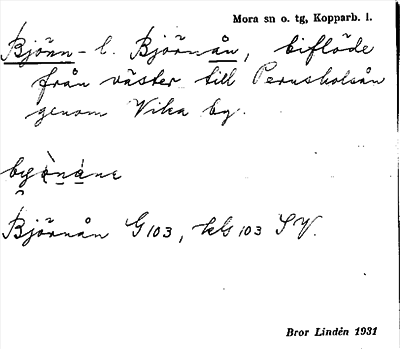 Mora sn o. tg, Kopparb. l.
Björn- l. Björnån, biflöde
från väster till Perusholsån
genom Vika by.
Björnån G 103, kls 103 SV.
Bror Lindén 1931